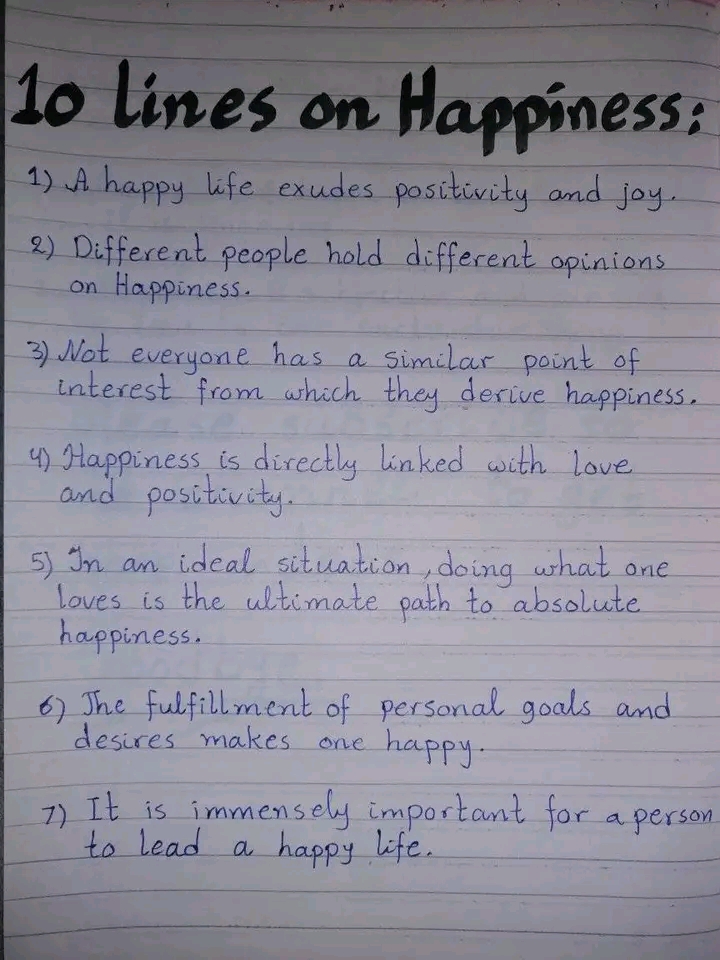 10 lines on Happiness:
1) A happy life exudes positivity and joy.
2) Different people hold different opinions
on Happiness.
3) Not everyone has a similar point of
interest from which they derive happiness.
4) Happiness is directly linked with love
and positivity.
5) In an ideal situation, doing what one
loves is the ultimate path to absolute
happiness.
6) The fulfillment of personal goals and
desires makes one happy.
7) It is immensely important for a person
to lead a happy life.